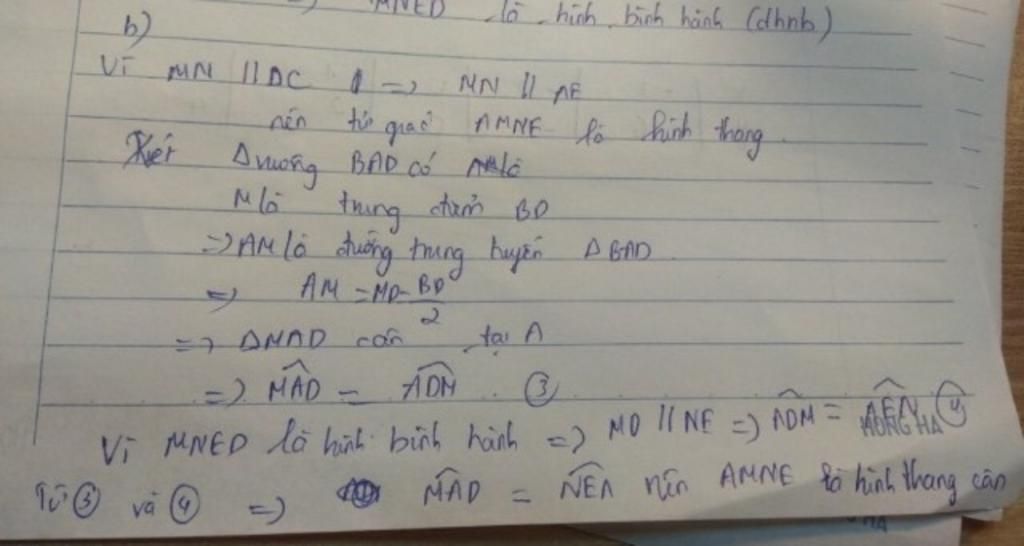 MNED là hình bình hành (dhnb)
b)
Vì MN // DC => MN // AE
nên tứ giác AMNE là hình thang.
Xét Δ vuông BAD có
M là trung điểm BD
=> AM là đường trung tuyến Δ BAD
=> AM = MD = BD/2
=> Δ MAD cân tại A
=> MAD = ADM (3)
Vì MNED là hình bình hành => MD // NE => ADM = AEN (4)
HONG HA
Từ (3) và (4) => MAD = NEA nên AMNE là hình thang cân
HA